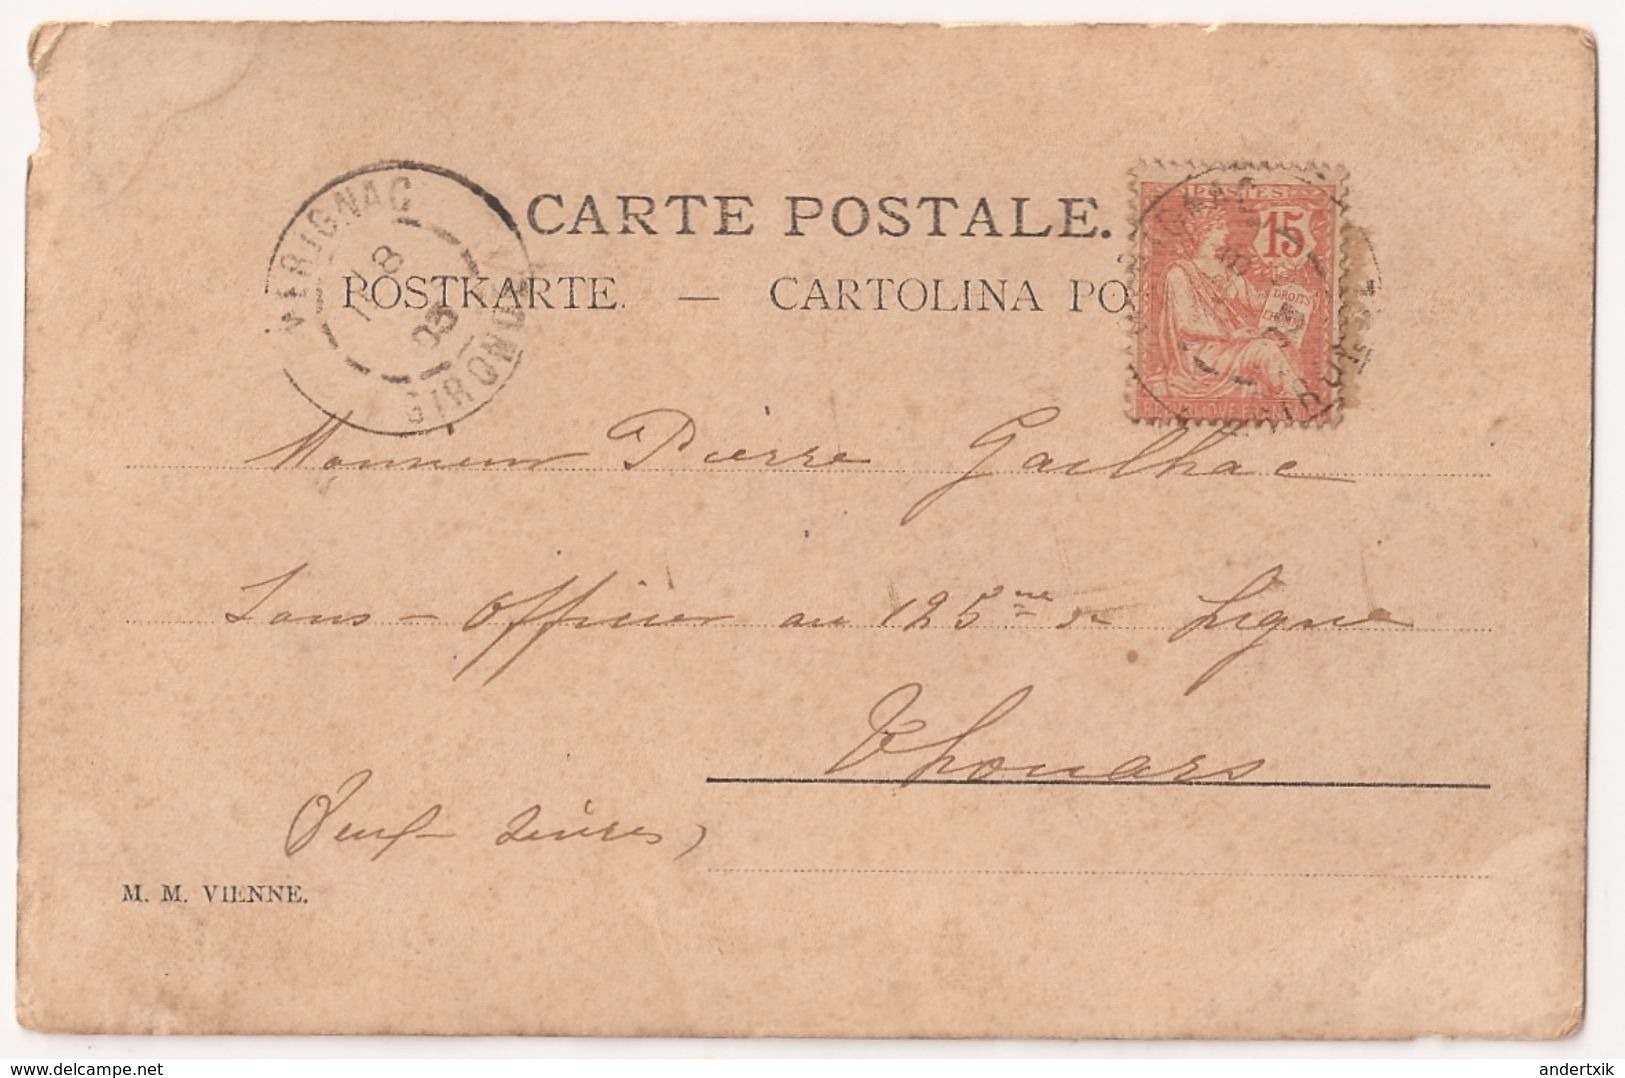 CARTE POSTALE.
POSTKARTE. — CARTOLINA PO
MERIGNAC
11 8
03
GIRONDE
POSTES
15
DROITS
Monsieur Pierre Gailhac
Sous-Officier au 125me de Ligne
Thouars
Deux Sèvres,
M. M. VIENNE.
www.delcampe.net
andertxik